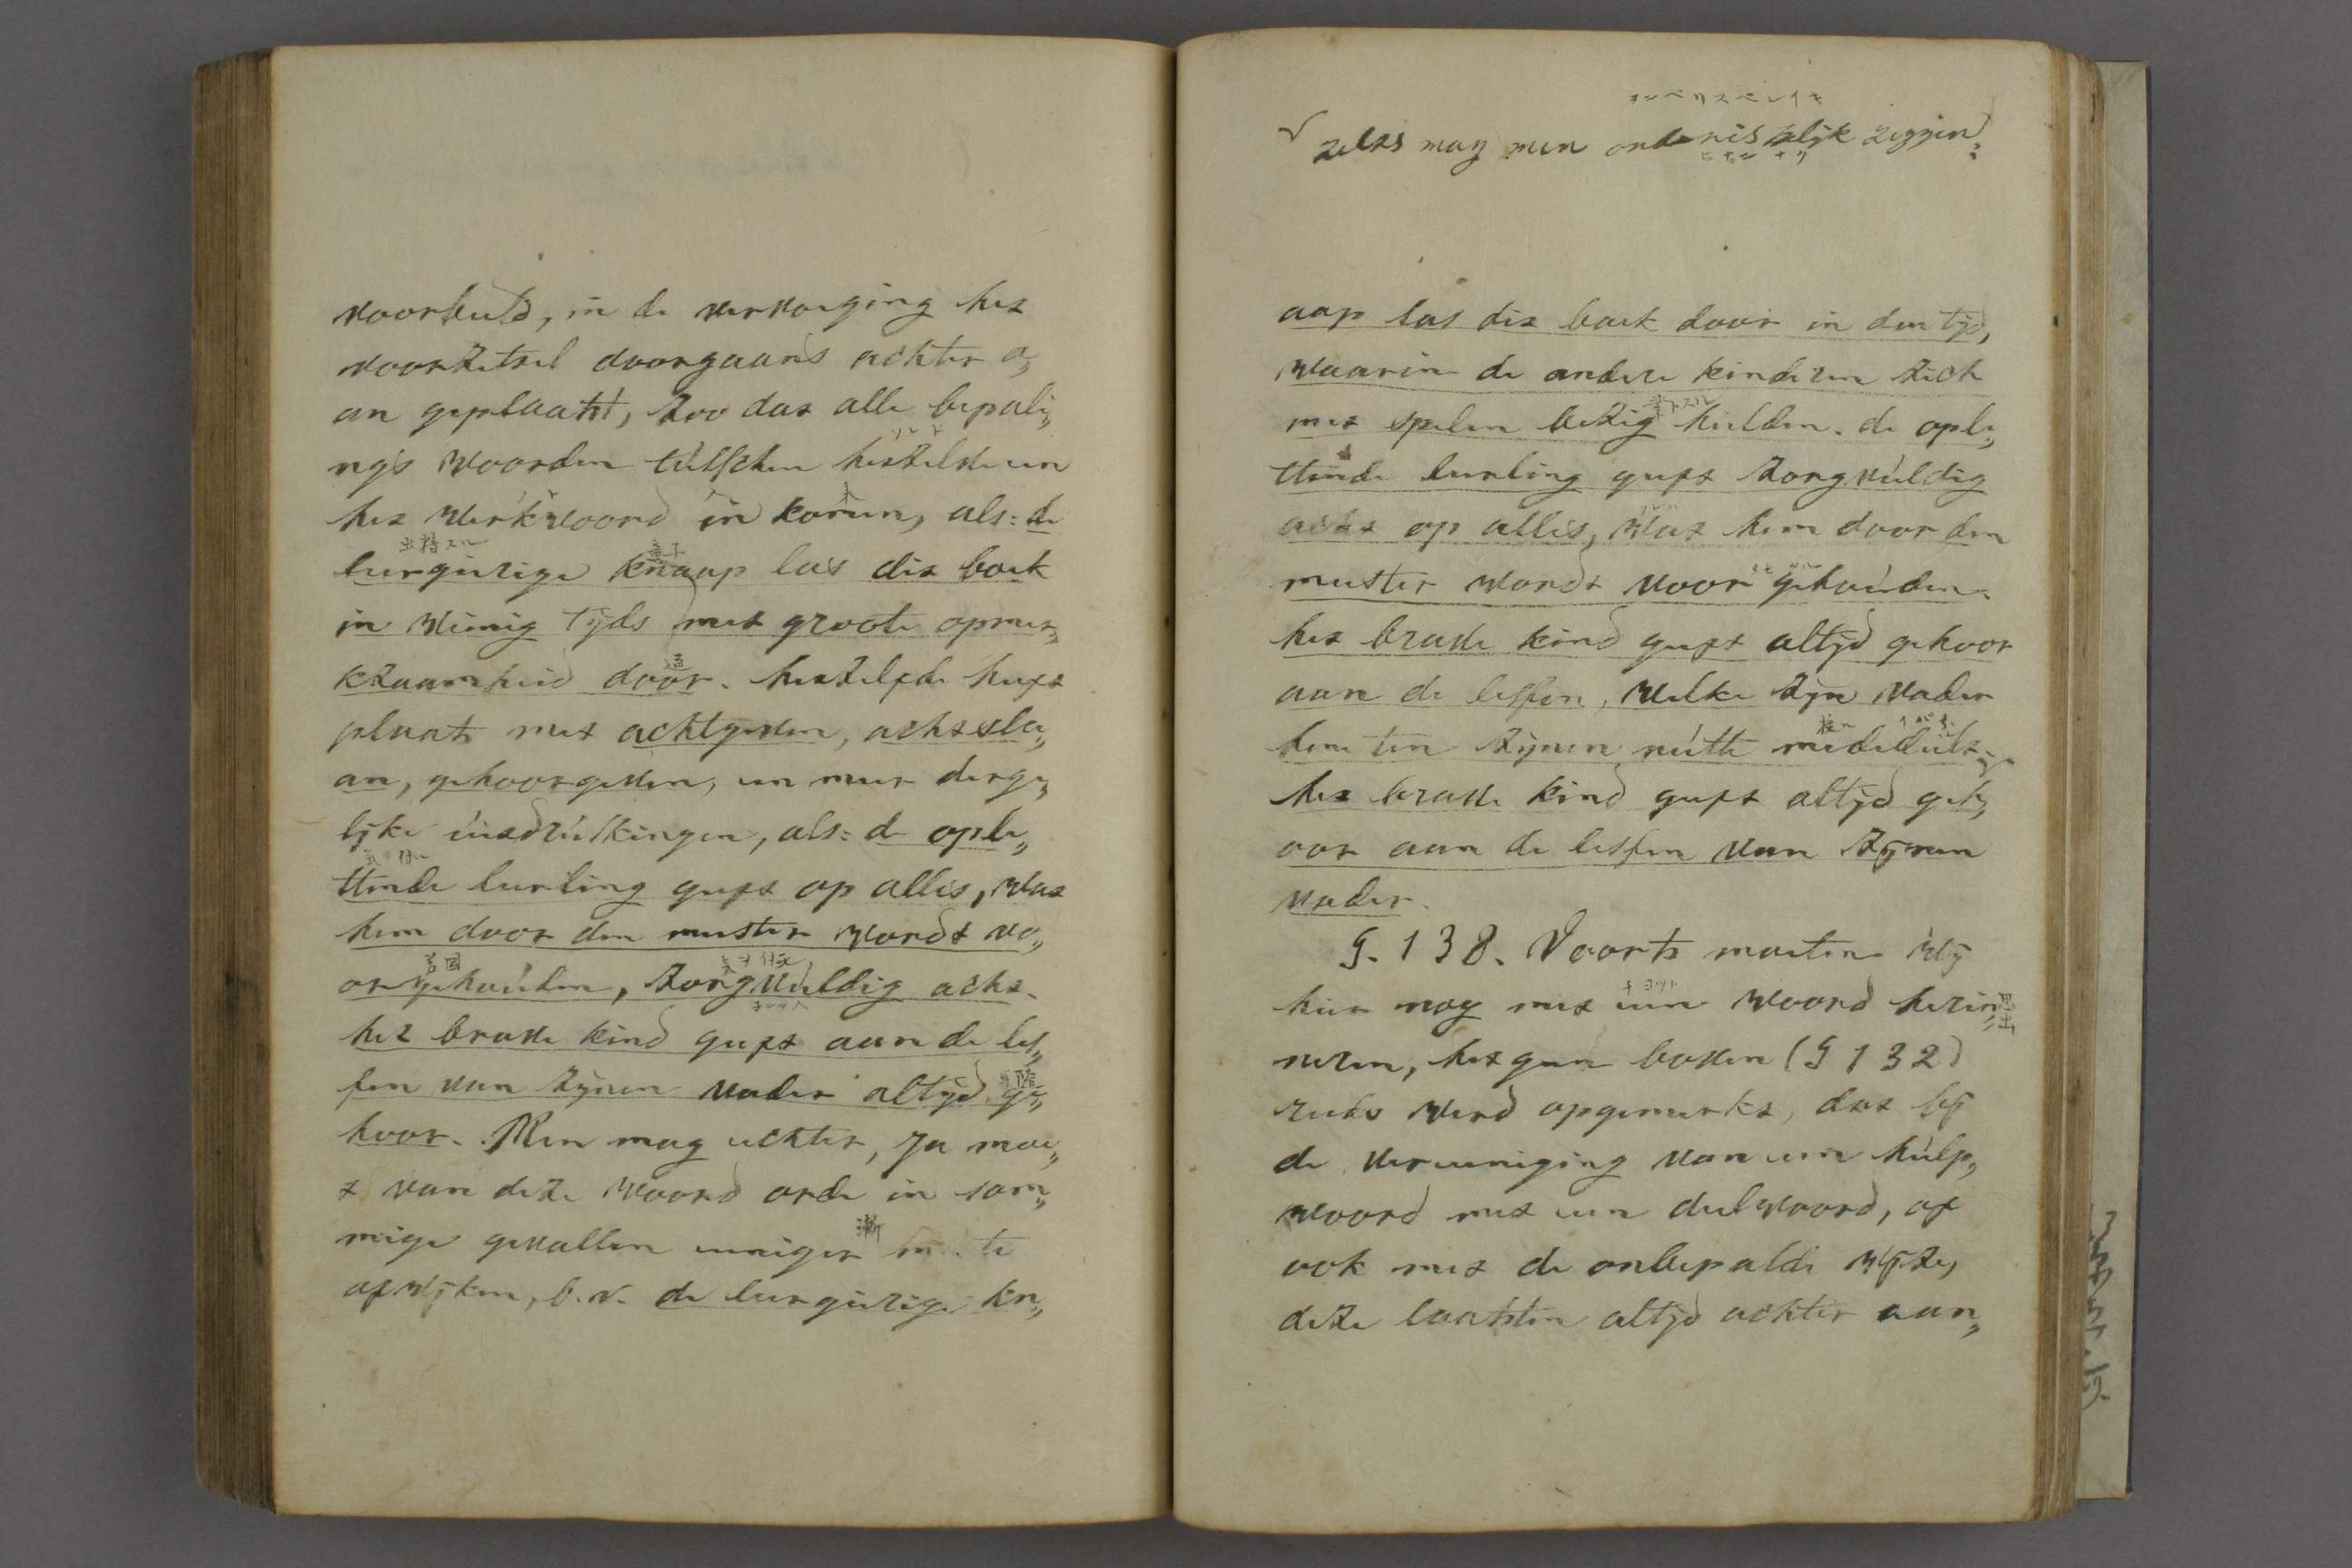 voorbeeld, in de vervoeging het
voorzetsel doorgaans achter a„
an geplaatst, zoo dat alle bepali„
ngs woorden tusschen hetzelve en
het werkwoord in komen, als: de
leergierige knaap las dit boek
in weinig tijds met groote opmer„
kzaamheid door. hetzelfde heeft
plaats met achtgeven, acht sla„
an, gehoorgeven, en meer derge„
lijke uitdrukkingen, als: de ople„
ttende leerling geeft op alles, wat
hem door den meester wordt vo„
orgehouden, zorgvuldig acht.
het brave kind geeft aan de les„
sen van zijnen vader altijd ge„
hoor. Men mag echter, ja moe„
t van deze woord orde in som„
mige gevallen eeniger m te
afwijken, b.v. de leergierige kn„
オンベリスペレイキ
zelfs mag men onberispelijk zeggen:
aap las dit boek door in den tijd,
waarin de andere kinderen zich
met spelen bezig hielden. de ople„
ttende leerling geeft zorgvuldig
acht op alles, wat hem door den
meester wordt voor gehouden.
het brave kind geeft altijd gehoor
aan de lessen, welke zijn vader
hem ten zijnen nutte mededeelt.
het brave kind geeft altijd geh„
oor aan de lessen van zijnen
vader.
§. 138. Voorts moeten wij
hier nog met een woord herin„
neren, hetgeen boven (§ 132)
reeds werd opgemerkt, dat bij
de vereeniging van een hulp„
woord met een deelwoord, of
ook met de onbepaalde wijze,
deze laatsten altijd achter aan„